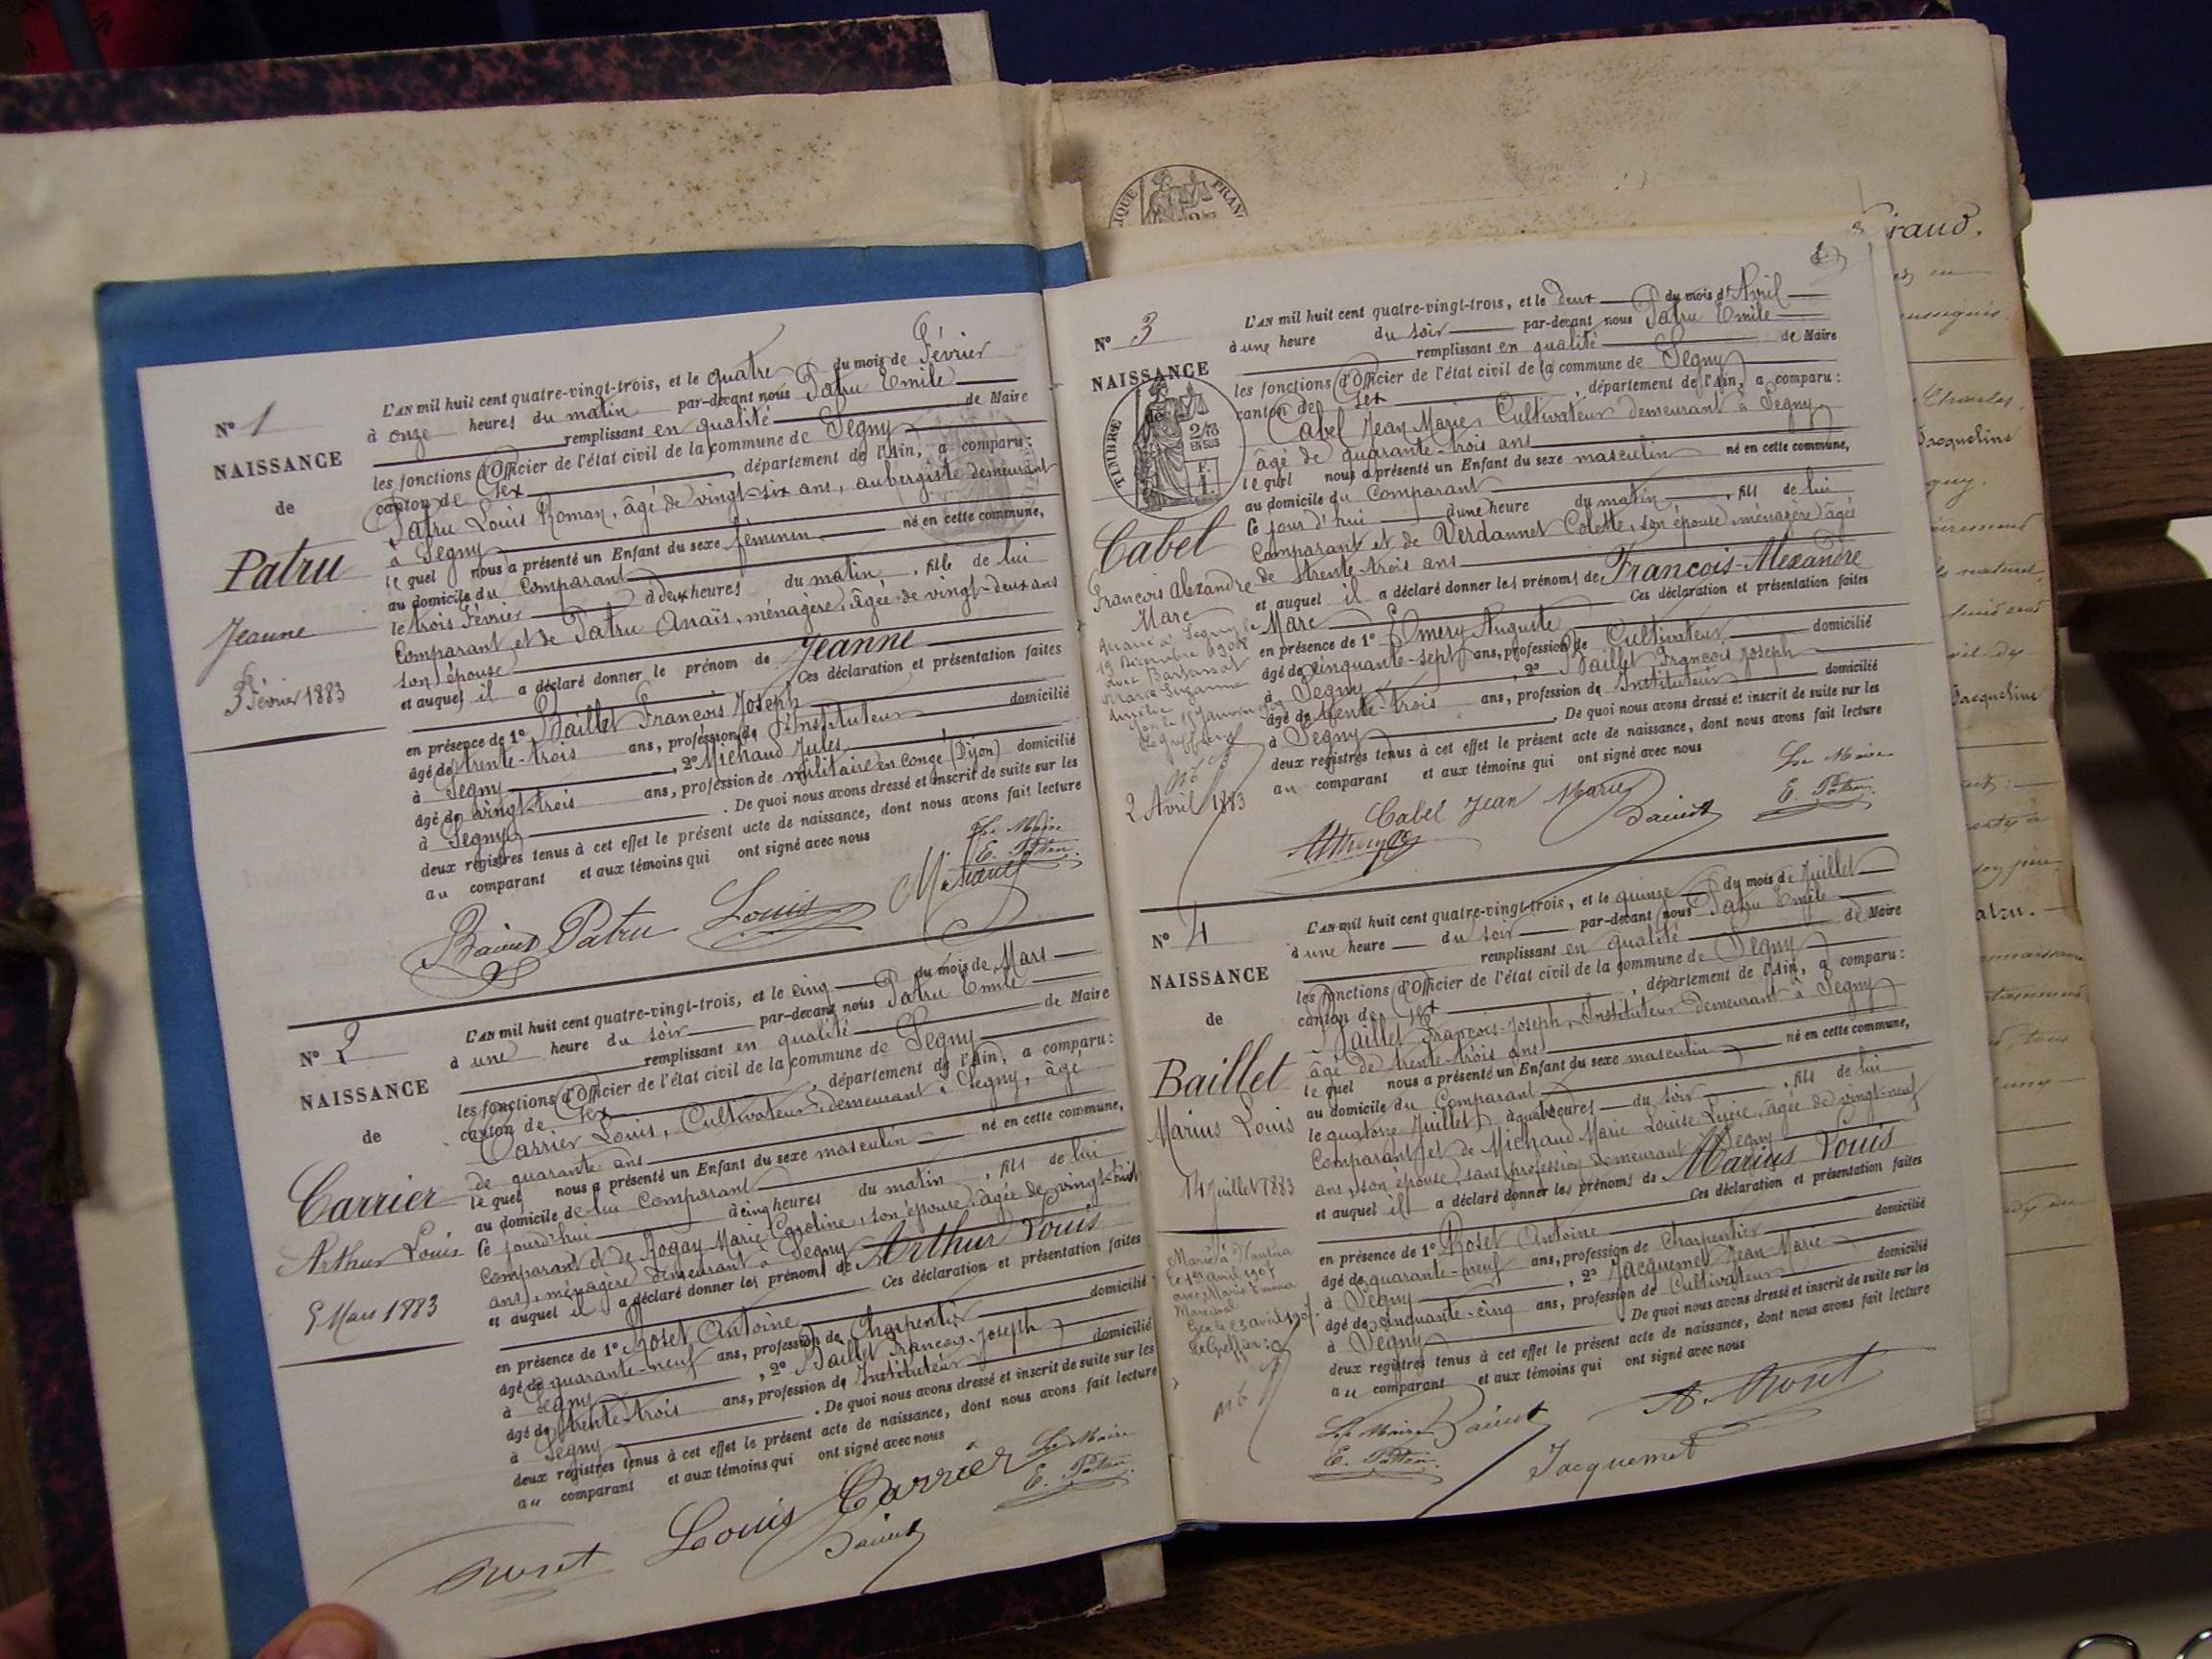 Nº 1
NAISSANCE
de
Patru
Jeanne
3 Février 1883
L'AN mil huit cent quatre-vingt-trois, et le quatre du mois de Février
à onze heures du matin par-devant nous Patru Emile
remplissant en qualité de Maire
les fonctions d'Officier de l'état civil de la commune de Segny
canton de Gex, département de l'Ain, a comparu:
Patru Louis Roman, âgé de vingt-six ans, aubergiste demeurant
à Segny
lequel nous a présenté un Enfant du sexe féminin né en cette commune,
au domicile du Comparant
le trois Février à deux heures du matin, fille de lui
Comparant et de Patru Anaïs, ménagère, âgée de vingt-deux ans
son épouse
et auquel il a déclaré donner le prénom de Jeanne
Ces déclaration et présentation faites
en présence de 1º Baillet François Joseph
âgé de trente-trois ans, profession de Instituteur domicilié
à Segny, 2º Michaud Jules
âgé de vingt-trois ans, profession de militaire en congé (Dijon) domicilié
à Segny. De quoi nous avons dressé et inscrit de suite sur les
deux registres tenus à cet effet le présent acte de naissance, dont nous avons fait lecture
au comparant et aux témoins qui ont signé avec nous
Le Maire
E. Patru
Patru Louis
Nº 2
NAISSANCE
de
Carrier
Arthur Louis
5 Mars 1883
L'AN mil huit cent quatre-vingt-trois, et le cinq du mois de Mars
à une heure du soir par-devant nous Patru Emile
remplissant en qualité de Maire
les fonctions d'Officier de l'état civil de la commune de Segny
canton de Gex, département de l'Ain, a comparu:
Carrier Louis, Cultivateur, demeurant à Segny, âgé
de quarante ans
lequel nous a présenté un Enfant du sexe masculin né en cette commune,
au domicile de lui Comparant
ce jourd'hui à cinq heures du matin, fils de lui
Comparant et de Rogay Marie Caroline, son épouse, âgée de vingt-huit
ans, ménagère demeurant à Segny
et auquel il a déclaré donner les prénoms de Arthur Louis
Ces déclaration et présentation faites
en présence de 1º Roset Antoine
âgé de quarante-neuf ans, profession de Charpentier domicilié
à Segny, 2º Baillet François-Joseph
âgé de trente-trois ans, profession de Instituteur domicilié
à Segny. De quoi nous avons dressé et inscrit de suite sur les
deux registres tenus à cet effet le présent acte de naissance, dont nous avons fait lecture
au comparant et aux témoins qui ont signé avec nous
Le Maire
E. Patru
Roset Louis Carrier
TIMBRE
2/10
EN SUS
Nº 3
NAISSANCE
de
Cabel
François Alexandre
Marc
2 Avril 1883
L'AN mil huit cent quatre-vingt-trois, et le deux du mois d'Avril
à une heure du soir par-devant nous Patru Emile
remplissant en qualité de Maire
les fonctions d'Officier de l'état civil de la commune de Segny
canton de Gex, département de l'Ain, a comparu:
Cabel Jean Marie, Cultivateur demeurant à Segny
âgé de quarante-trois ans
lequel nous a présenté un Enfant du sexe masculin né en cette commune,
au domicile du Comparant
Ce jour d'hui à une heure du matin, fils de lui
Comparant et de Verdannet Colette, son épouse, ménagère âgée
de trente-trois ans
et auquel il a déclaré donner les prénoms de François-Alexandre
Marc Ces déclaration et présentation faites
en présence de 1º Emery Auguste
âgé de cinquante-sept ans, profession de Cultivateur domicilié
à Segny, 2º Baillet François Joseph
âgé de trente-trois ans, profession de Instituteur domicilié
à Segny. De quoi nous avons dressé et inscrit de suite sur les
deux registres tenus à cet effet le présent acte de naissance, dont nous avons fait lecture
au comparant et aux témoins qui ont signé avec nous
Le Maire
E. Patru
Cabel Jean Marie
Nº 4
NAISSANCE
de
Baillet
Marius Louis
14 Juillet 1883
Le Greffier:
L'AN mil huit cent quatre-vingt-trois, et le quinze du mois de Juillet
à une heure du soir par-devant nous Patru Emile
remplissant en qualité de Maire
les fonctions d'Officier de l'état civil de la commune de Segny
canton de Gex, département de l'Ain, a comparu:
Baillet François-Joseph, Instituteur Demeurant à Segny
âgé de trente-trois ans
lequel nous a présenté un Enfant du sexe masculin né en cette commune,
au domicile du Comparant
le quatorze Juillet à quatre heures du soir, fils de lui
Comparant et de Michaud Marie Louise Lucie, âgée de vingt-neuf
ans, son épouse, sans profession demeurant à Segny
et auquel il a déclaré donner les prénoms de Marius Louis
Ces déclaration et présentation faites
en présence de 1º Roset Antoine
âgé de quarante-neuf ans, profession de Charpentier domicilié
à Segny, 2º Jacquemet Jean-Marie
âgé de cinquante-cinq ans, profession de Cultivateur domicilié
à Segny. De quoi nous avons dressé et inscrit de suite sur les
deux registres tenus à cet effet le présent acte de naissance, dont nous avons fait lecture
au comparant et aux témoins qui ont signé avec nous
Le Maire
E. Patru
A. Roset
Jacquemet